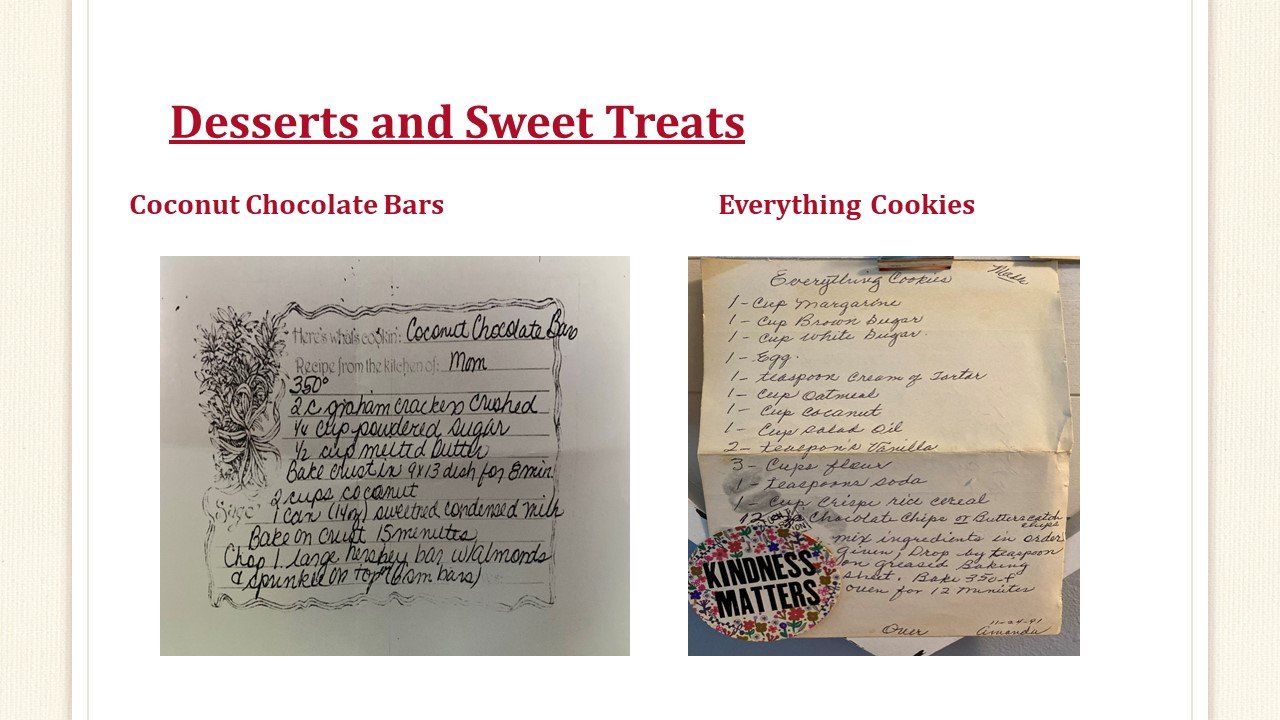 Desserts and Sweet Treats
Coconut Chocolate Bars
Here's what's cookin: Coconut Chocolate Bars
Recipe from the kitchen of: Mom
350°
2 c graham crackers crushed
1/4 cup powdered sugar
1/2 cup melted butter
Bake crust in 9x13 dish for 8 min
2 cups coconut
1 can (14oz) sweetned condensed milk
Bake on crust 15 minutes
Chop 1 large hershey bar w/almonds
& sprinkle on top (6 sm bars)
Sage
Everything Cookies
Everything Cookies
1 - Cup Margarine
1 - Cup Brown Sugar
1 - Cup white Sugar
1 - Egg
1 - teaspoon Cream of Tartar
1 - Cup Oatmeal
1 - Cup Coconut
1 - Cup Salad Oil
2 - teaspoon's Vanilla
3 - Cups flour
1 - teaspoons soda
1 - Cup Crispe rice cereal
12 oz Chocolate Chips or Butterscotch
chips
mix ingredients in order
given, Drop by teaspoon
on greased Baking
sheet. Bake 350-F
oven for 12 minutes
KINDNESS
MATTERS
Over
11-24-91
Amanda